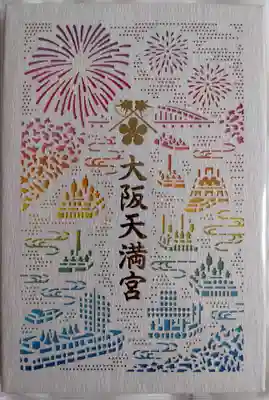 大阪天満宮